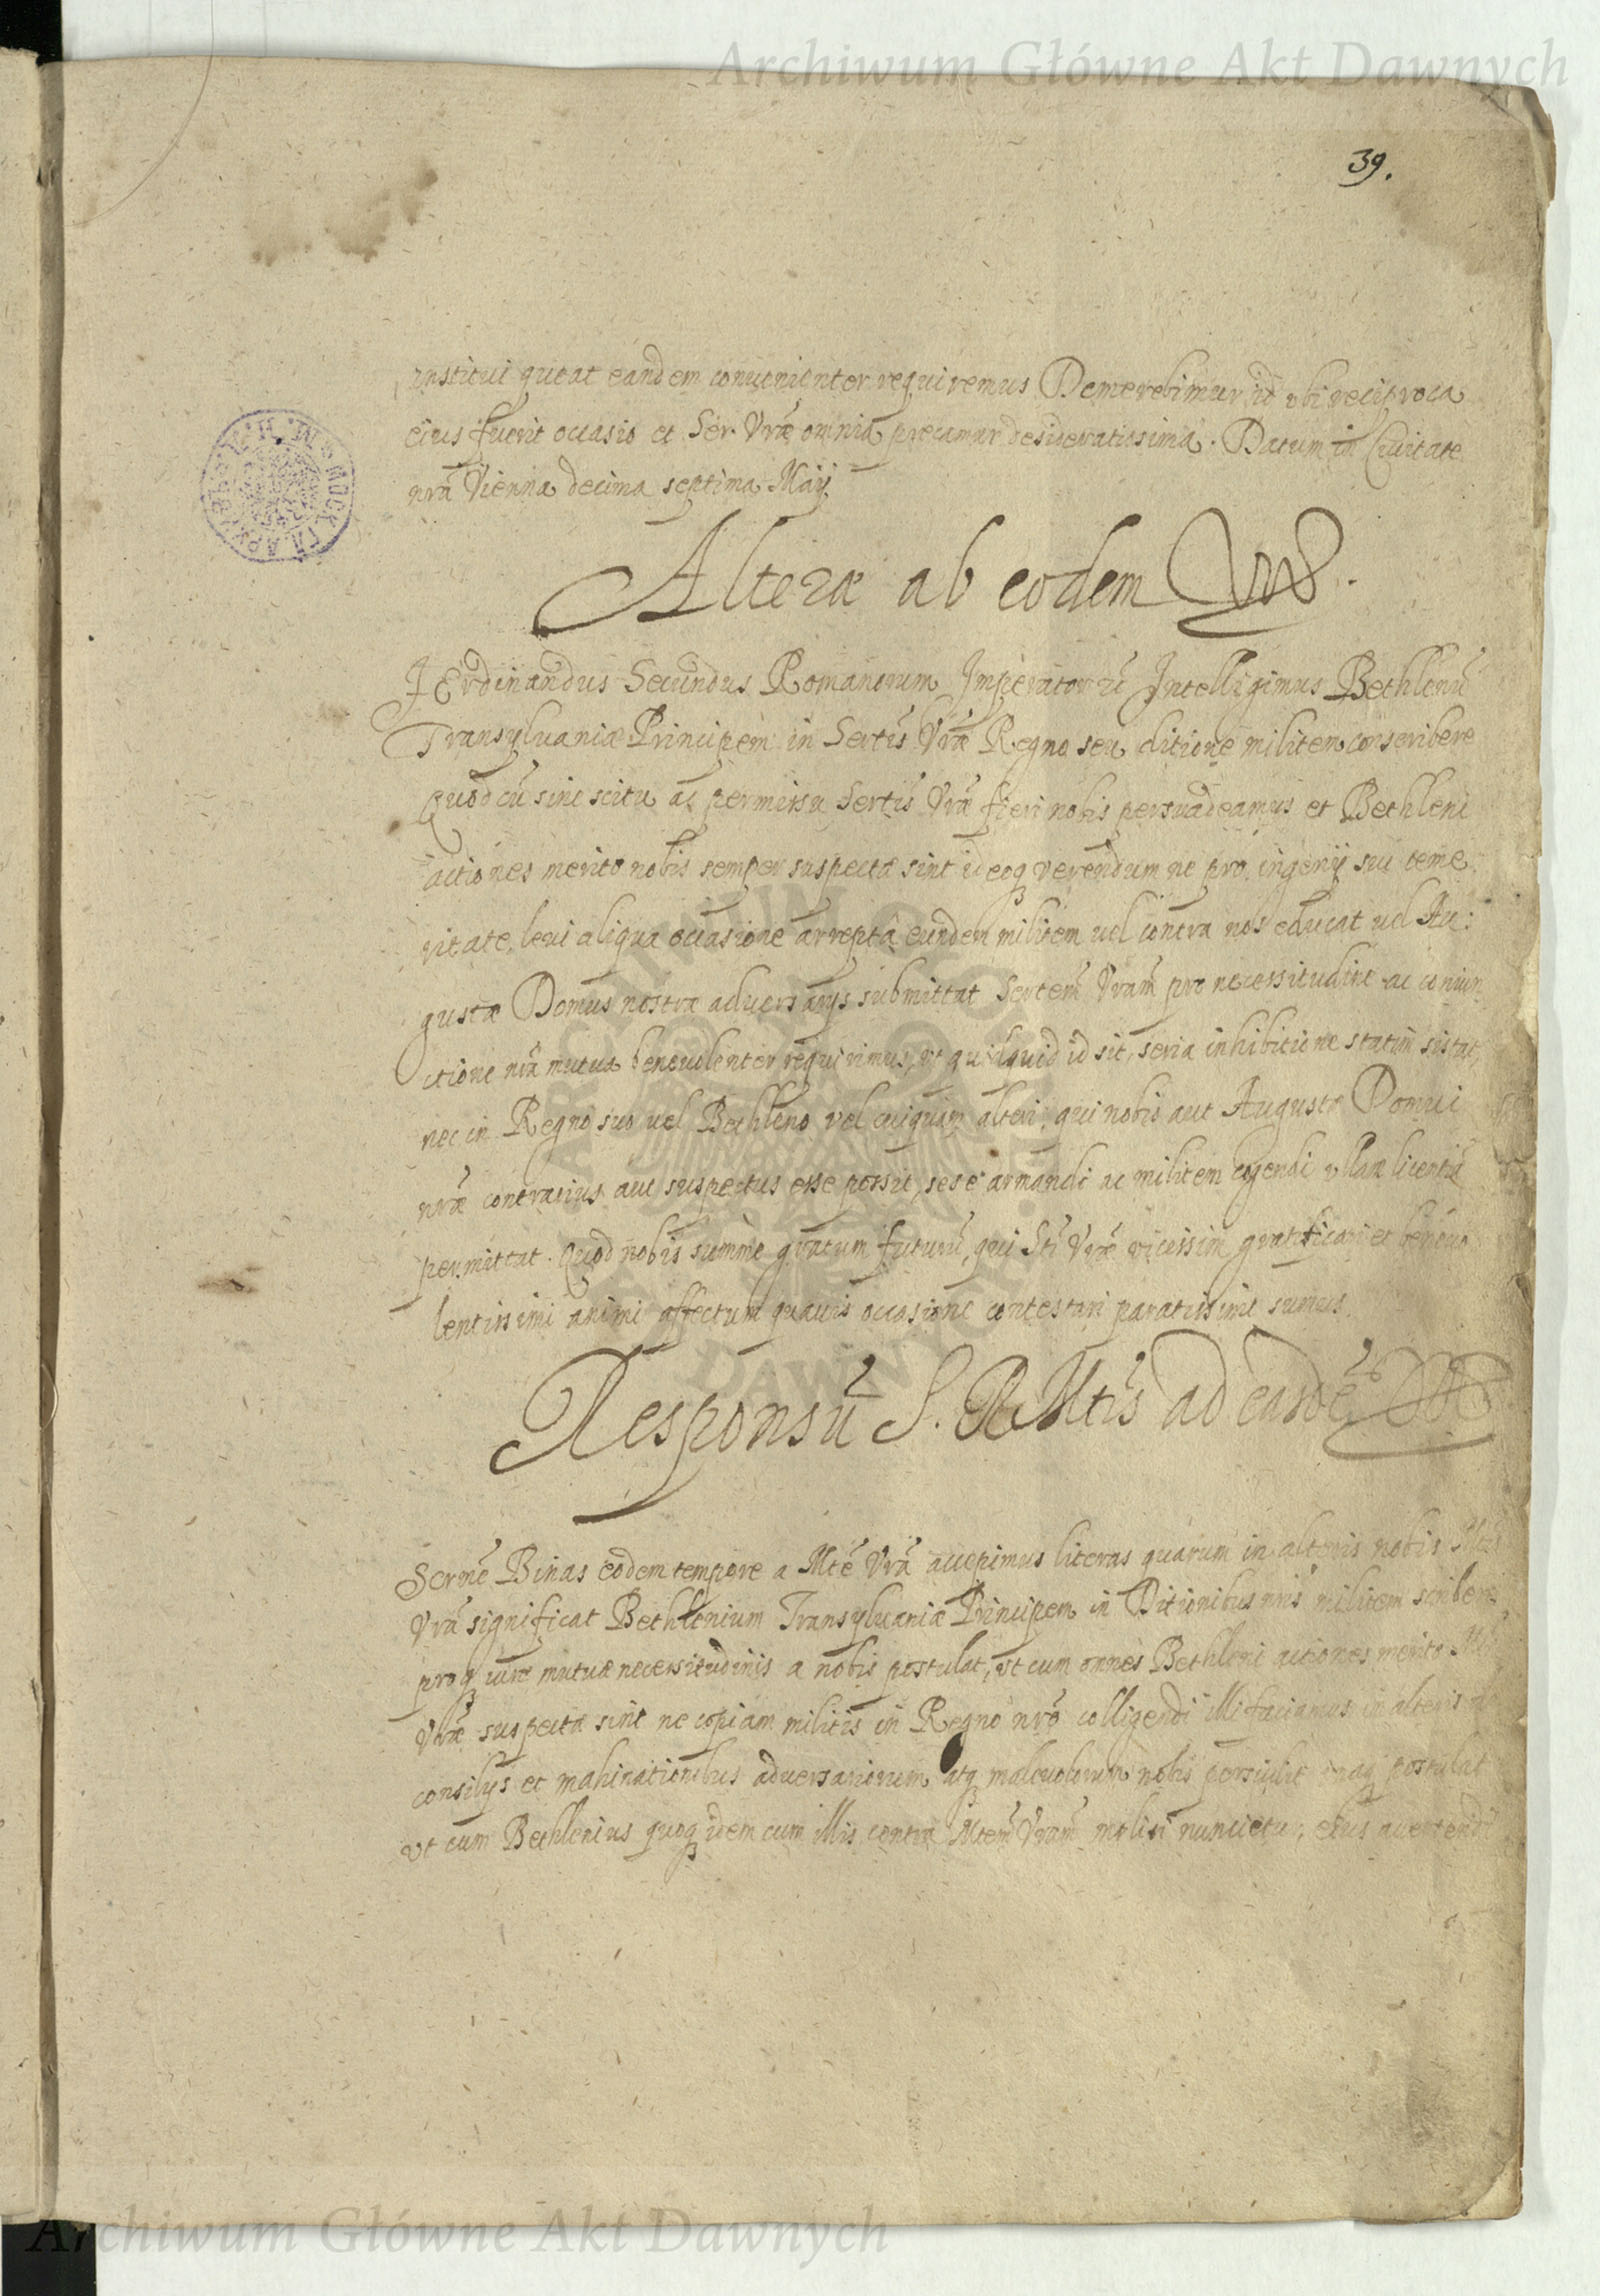 Archiwum Główne Akt Dawnych
39.
institui queat eandem convenienter requiremus Demerebimur id ubi reciproca
eius fuerit occasio et Ser. Vræ omnia precamur desideratissima. Datum in Civitate
nrã Vienna decima septima Maij
Alteræ ab eodem
Ferdinandus Secundus Romanorum Imperator Intelligimus Bethlenũ
Transylvaniæ Principem in Sertis Vræ Regno seu ditione militem conscribere
Quod cũ sine scitu ac permissu Sertis Vræ fieri nobis persuadeamus et Bethleni
actiones merito nobis semper suspectæ sint ideoq verendum ne pro ingenij sui teme
ritate, levi aliqua occasione arreptâ eundem militem vel contra nos educat vel Au:
gustæ Domus nostræ adversarijs submittat Sertem Vram pro necessitudine ac coniun
ctione nrã mutua benevolenter requirimus, ut quidquid id sit, seria inhibitione statim sistat,
nec in Regno suo vel Bethleno vel cuiquam alteri, qui nobis aut Augustæ Domui
nræ contrarius aut suspectus esse possit, sese armandi ac militem cogendi ullam licentiã
permittat. Quod nobis summè gratum futurũ, qui Sti Vræ vicissim gratificari et benevo
lentissimi animi affectum quavis occasione contestari paratissimi sumus.
Responsũ S. R Mtis ad easdẽ
Sermẽ Binas eodem tempore a Mtẽ Vrã accepimus literas quarum in alteris nobis Mtas
Vrã significat Bethlenium Transylvaniæ Principem in Ditionibus nris militem scribere
proq iure mutuæ necessitudinis a nobis postulat, ut cum omnes Bethleni actiones merito Mti
Vræ suspectæ sint ne copiam militis in Regno nrõ colligendi illi faciamus in alteris de
consilijs et mahinationibus adversariorum atq malevolorum nobis postulat
ut cum Bethlenius quoq idem cum illis contra Mtem Vram moliri nuncietur, eius
Archiwum Główne Akt Dawnych